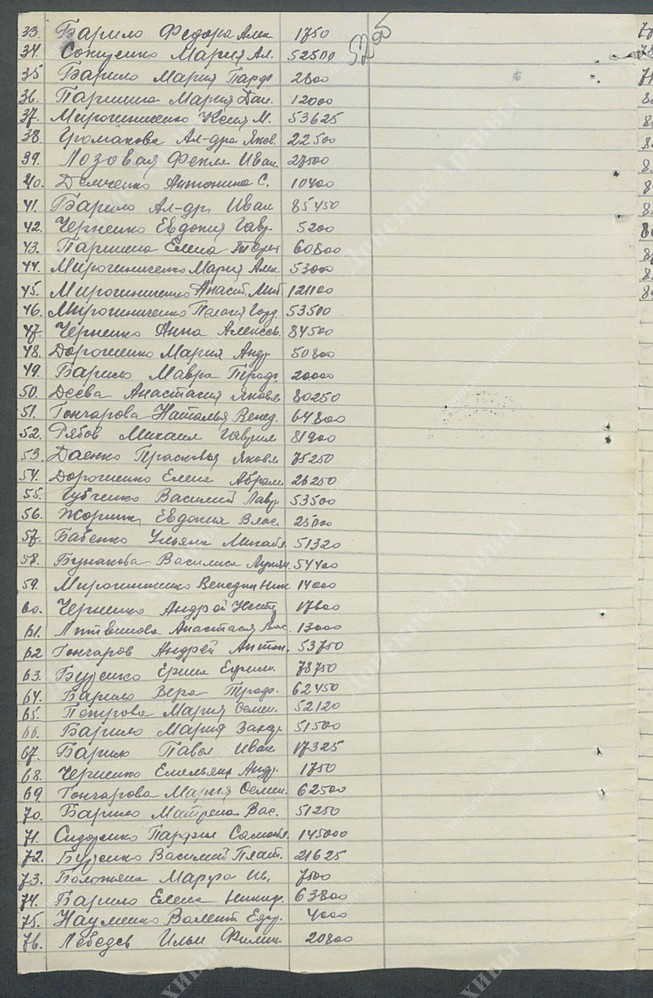 33. Барило Федора Алек 1750
34. Сокуренко Мария Ал. 52500 5200
35 Барило Мария Парф 2800
36. Паршина Мария Дан. 12000
37. Мирошниченко Ксения М. 53625
38. Громакова Ал-дра Яков. 22500
39. Лозовая Фекла Иван. 27500
40. Демченко Антонина С. 10400
41. Барило Ал-др Иван 85450
42. Черненко Евдокия Гавр 5200
43. Паршина Елена 60800
44. Мирошниченко Мария Алек 53000
45. Мирошниченко Анаст. Мит 121100
46. Мирошниченко Пелагея 53500
47. Черненко Анна Алексеев. 84500
48. Дорошенко Мария Андр. 50800
49. Барило Мавра Проф. 20000
50. Деева Анастасия Яковл 80250
51. Гончарова Наталья Венед. 64800
52. Рябов Михаил Гаврил 81900
53. Даенко Прасковья Яковл 75250
54. Дорошенко Елена Абрам 26250
55. Губченко Василий Лавр 53500
56. Евдокия Влас. 25000
57. Бабенко Ульяна Михайл. 51320
58. Бунакова Василиса 54400
59. Мирошниченко Венедикт Ник 14000
60. Черненко Андрей 17800
61. Литвинова Анастасия Вас. 13000
62 Гончаров Андрей Антон. 53750
63. Буценко 78750
64. Барило Вера Проф. 62450
65. Петрова Мария Семен. 52120
66. Барило Мария Захар. 51500
67. Барило Павел Иван 17325
68. Черненко Емельян Андр. 1750
69 Гончарова Мария Семен. 62500
70. Барило Матрена Вас. 51250
71. Сидоренко Парфил Самойл. 145000
72. Буценко Василий Плат. 21625
73. Марфа Ив. 7500
74. Барило Елена Никиф. 63800
75. Науменко Валент. 4000
76. Лебедев Илья Филип. 20800